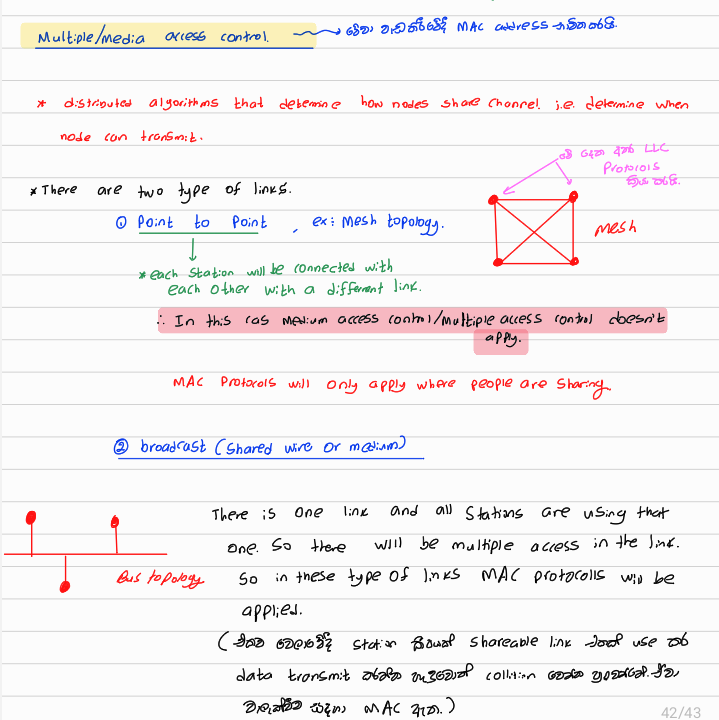 Multiple/Media access control. MAC address
* distributed algorithms that determine how nodes share channel. i.e. determine when
node can transmit.
මේ දෙක අතර LLC
Protocols
* There are two type of links.
① Point to Point , ex: Mesh topology.
Mesh
* each Station will be connected with
each other with a different link.
∴ In this cas medium access control/multiple access control doesn't
apply.
MAC Protocols will only apply where people are sharing.
② broadcast (shared wire or medium)
There is one link and all Stations are using that
one. So there will be multiple access in the link.
Bus topology
So in these type of links MAC protocolls will be
applied.
( station shareable link use කර
data transmit collision
MAC ඇත.)
42/43